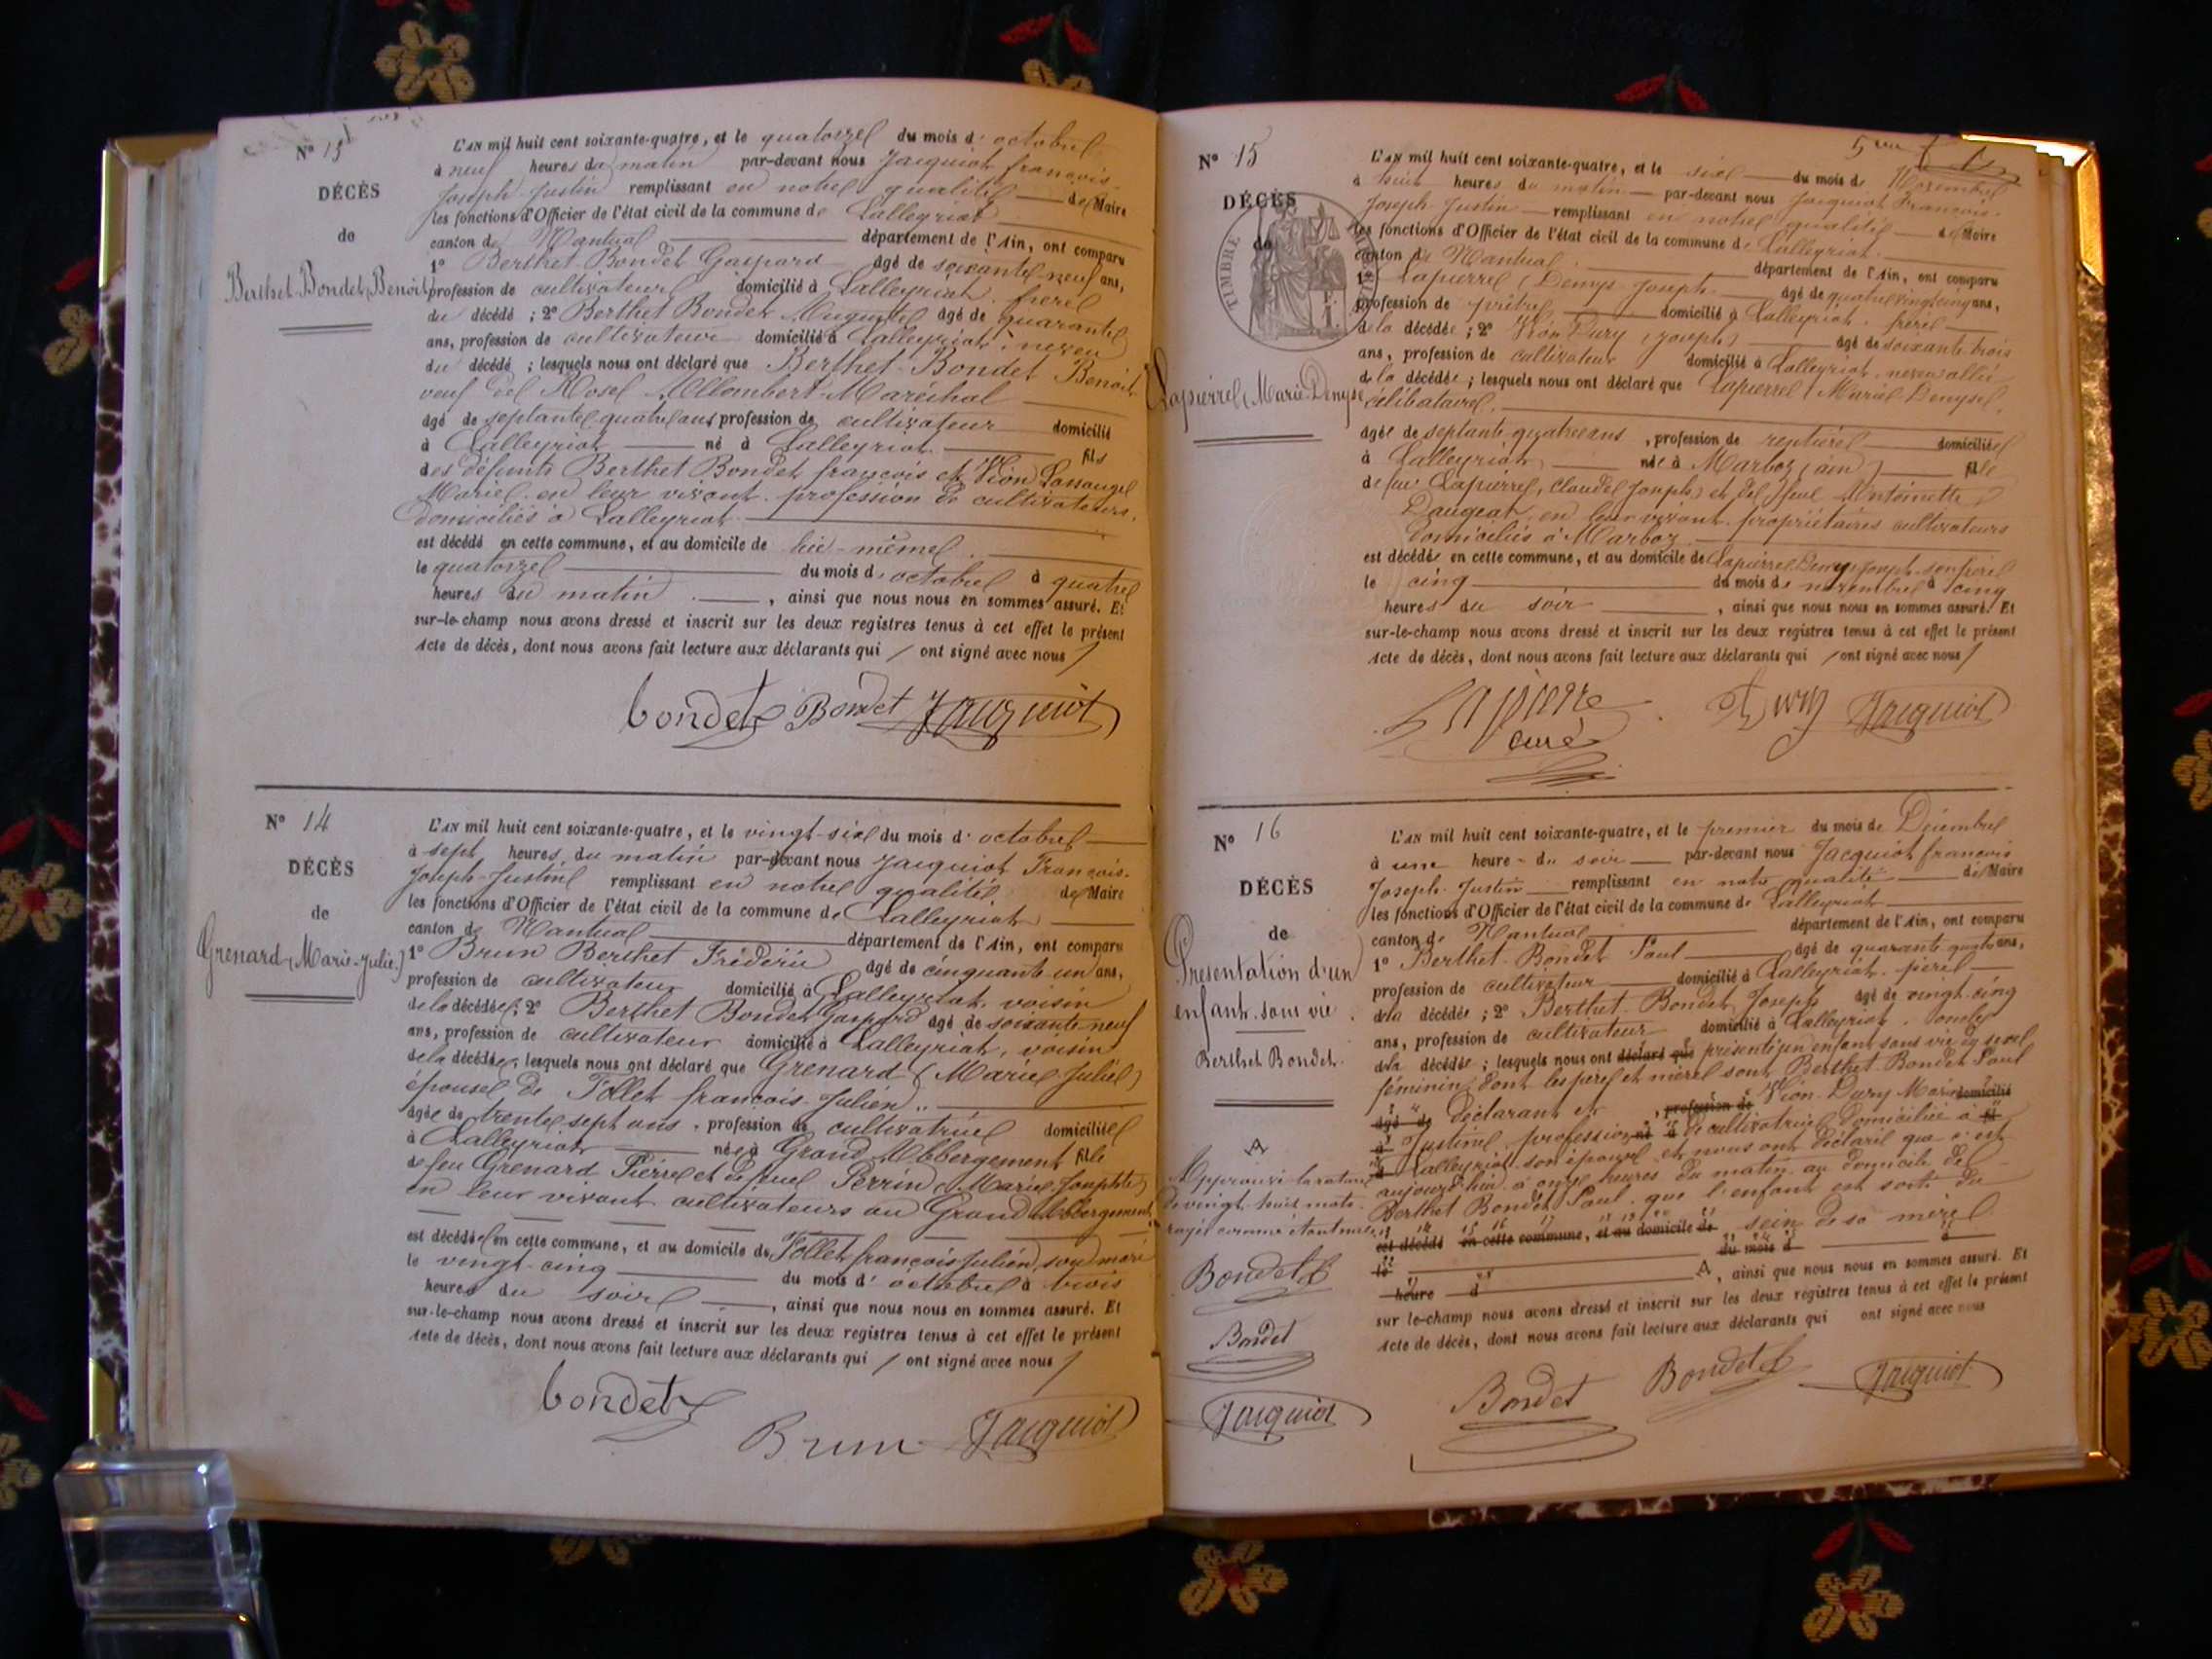 N° 13
DÉCÈS
de
Berthet-Bondet, Benoit
L'AN mil huit cent soixante-quatre, et le quatorze du mois d'octobre
à neuf heures du matin par-devant nous Jacquiot françois-
Joseph-Justin remplissant en notre qualité de Maire
les fonctions d'Officier de l'état civil de la commune de Lalleyriat
canton de Nantua département de l'Ain, ont comparu
1° Berthet-Bondet Gaspard âgé de soixante-neuf ans,
profession de cultivateur domicilié à Lalleyriat, frère
du décédé ; 2° Berthet Bondet Auguste âgé de quarante
ans, profession de cultivateur domicilié à Lalleyriat, neveu
du décédé ; lesquels nous ont déclaré que Berthet-Bondet Benoit
veuf de Rose Allombert-Maréchal
âgé de septante-quatre ans profession de cultivateur domicilié
à Lalleyriat né à Lalleyriat fils
des défunts Berthet Bondet françois et Vion
Marie en leur vivant profession de cultivateurs,
domiciliés à Lalleyriat
est décédé en cette commune, et au domicile de lui-même
le quatorze du mois d'octobre à quatre
heures du matin, ainsi que nous nous en sommes assuré. Et
sur-le-champ nous avons dressé et inscrit sur les deux registres tenus à cet effet le présent
Acte de décès, dont nous avons fait lecture aux déclarants qui / ont signé avec nous /
bondet Bondet Jacquiot
N° 14
DÉCÈS
de
Grenard (Marie-Julie)
L'AN mil huit cent soixante-quatre, et le vingt-six du mois d'octobre
à sept heures du matin par-devant nous Jacquiot François-
Joseph-Justin remplissant en notre qualité de Maire
les fonctions d'Officier de l'état civil de la commune de Lalleyriat
canton de Nantua département de l'Ain, ont comparu
1° Brun Berthet Frédéric âgé de cinquante-un ans,
profession de cultivateur domicilié à Lalleyriat, voisin
de la décédée ; 2° Berthet Bondet Gaspard âgé de soixante-neuf
ans, profession de cultivateur domicilié à Lalleyriat, voisin
de la décédée ; lesquels nous ont déclaré que Grenard (Marie-Julie)
épouse de Tollet françois-Julien
âgée de trente-sept ans, profession de cultivatrice domiciliée
à Lalleyriat née à Grand Abbergement fille
de feu Grenard Pierre et de feue Perrin Marie-Josephte
en leur vivant cultivateurs au Grand Abbergement
est décédée en cette commune, et au domicile de Tollet françois Julien, son mari
le vingt-cinq du mois d'octobre à trois
heures du soir, ainsi que nous nous en sommes assuré. Et
sur-le-champ nous avons dressé et inscrit sur les deux registres tenus à cet effet le présent
Acte de décès, dont nous avons fait lecture aux déclarants qui / ont signé avec nous /
bondet
Brun Jacquiot
N° 15
DÉCÈS
de
TIMBRE
Lapierre (Marie-Denyse)
L'AN mil huit cent soixante-quatre, et le six du mois de Novembre
à huit heures du matin par-devant nous Jacquiot François-
Joseph-Justin remplissant en notre qualité de Maire
les fonctions d'Officier de l'état civil de la commune de Lalleyriat
canton de Nantua département de l'Ain, ont comparu
1° Lapierre (Denys-Joseph) âgé de quatre vingt cinq ans,
profession de prêtre domicilié à Lalleyriat, frère
de la décédée ; 2° Vion Dury (Joseph) âgé de soixante-trois
ans, profession de cultivateur domicilié à Lalleyriat, neveu allié
de la décédée ; lesquels nous ont déclaré que Lapierre (Marie-Denyse),
célibataire,
âgée de septante-quatre ans, profession de rentière domiciliée
à Lalleyriat née à Marboz (ain) fille
de feu Lapierre, Claude Joseph et de feue Antoinette
Daugeat, en leur vivant propriétaires cultivateurs
domiciliés à Marboz
est décédée en cette commune, et au domicile de Lapierre Denys-Joseph son frère
le cinq du mois de novembre à cinq
heures du soir, ainsi que nous nous en sommes assuré. Et
sur-le-champ nous avons dressé et inscrit sur les deux registres tenus à cet effet le présent
Acte de décès, dont nous avons fait lecture aux déclarants qui / ont signé avec nous /
Lapierre Dury Jacquiot
curé
N° 16
DÉCÈS
de
Présentation d'un
enfant sans vie
Berthet Bondet
A
Approuvé la rature
de vingt-huit mots
rayés comme étant nuls
Bondet
Bondet
Jacquiot
L'AN mil huit cent soixante-quatre, et le premier du mois de Décembre
à une heure du soir par-devant nous Jacquiot françois
Joseph-Justin remplissant en notre qualité de Maire
les fonctions d'Officier de l'état civil de la commune de Lalleyriat
canton de Nantua département de l'Ain, ont comparu
1° Berthet-Bondet Paul âgé de quarante-quatre ans,
profession de cultivateur domicilié à Lalleyriat, père
de la décédée ; 2° Berthet-Bondet Joseph âgé de vingt-cinq
ans, profession de cultivateur domicilié à Lalleyriat, oncle
de la décédée ; lesquels nous ont déclaré que présenté un enfant sans vie du sexe
féminin, dont les père et mère sont Berthet-Bondet Paul
âgé de déclarant et, profession de Vion-Dury Marie domicilié
à Justine, profession né à de cultivatrice domiciliée à fil
d Lalleyriat son épouse, et nous ont déclaré que c'est
aujourd'hui à onze heures du matin au domicile de
Berthet Bondet Paul que l'enfant est sorti du
est décédé en cette commune, et au domicile de sein de sa mère
le du mois d à
heure d A, ainsi que nous nous en sommes assuré. Et
sur-le-champ nous avons dressé et inscrit sur les deux registres tenus à cet effet le présent
Acte de décès, dont nous avons fait lecture aux déclarants qui ont signé avec nous
Bondet Bondet Jacquiot